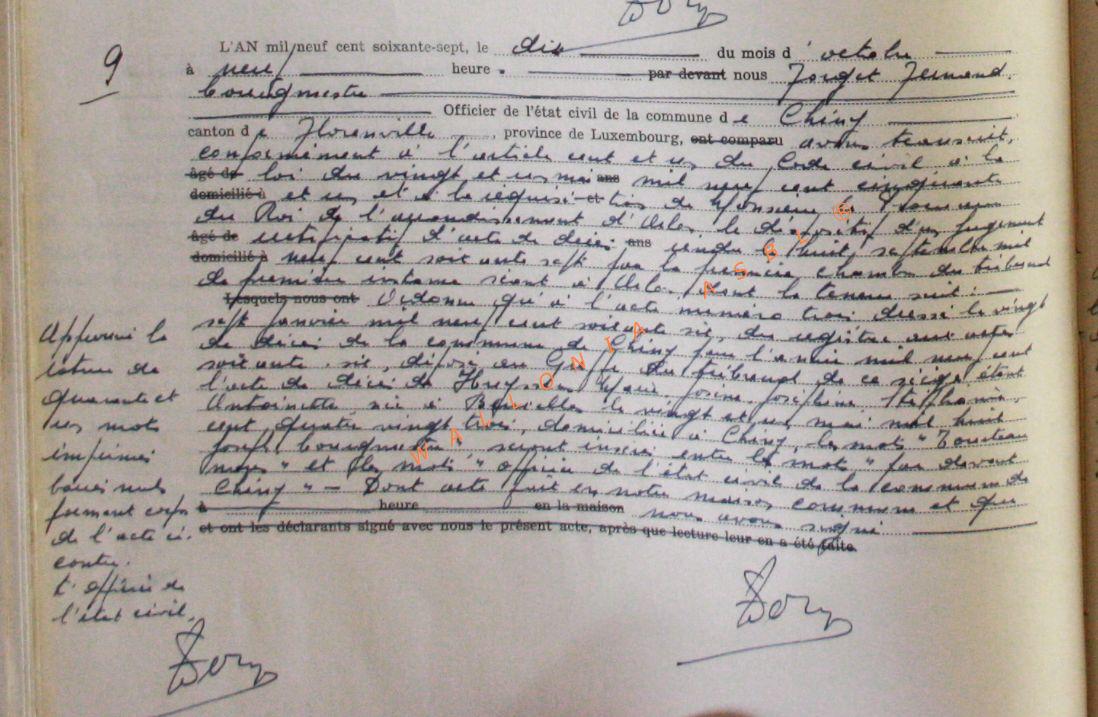 9
L'AN mil neuf cent soixante-sept, le dix du mois d' octobre
à neuf heure . par devant nous Forget Fernand
bourgmestre
Officier de l'état civil de la commune de Chiny
canton de Florenville , province de Luxembourg, ont comparu avons transcrit,
conformément à l'article cent et un du Code civil à la
âgé de loi du vingt et un mai ans mil neuf cent cinquante
domicilié à et un et à la réquisi-et-tion de Monsieur le Procureur
du Roi de l'arrondissement d'Arlon le dispositif d'un jugement
âgé de rectificatif d'acte de décès ans rendu le huit septembre mil
domicilié à neuf cent soixante sept par la première chambre du tribunal
de première instance séant à Arlon dont la teneur suit : —
Lesquels nous ont Ordonne qu'à l'acte numéro trois dressé le vingt
sept janvier mil neuf cent soixante six, du registre aux actes
de décès de la commune de Chiny pour l'année mil neuf cent
soixante six, déposé au Greffe du tribunal de ce siège étant
l'acte de décès de Marie Josine Joséphine Stéphanie
Antoinette née à Bruxelles le vingt et un mai mil huit
cent quatre vingt trois, domiciliée à Chiny, les mots "
Joseph bourgmestre " seront insérés entre les mots " par devant
nous " et les mots " officier de l'état civil de la commune de
Chiny " — Dont acte fait en notre maison commune et que
à heure en la maison nous avons signé
et ont les déclarants signé avec nous le présent acte, après que lecture leur en a été faite.
Approuvé la
rature de
quarante et
un mots
imprimés
barrés nuls
forment corps
de l'acte ci-
contre.
L'officier de
l'état civil,
WALLONIA ASBL ©